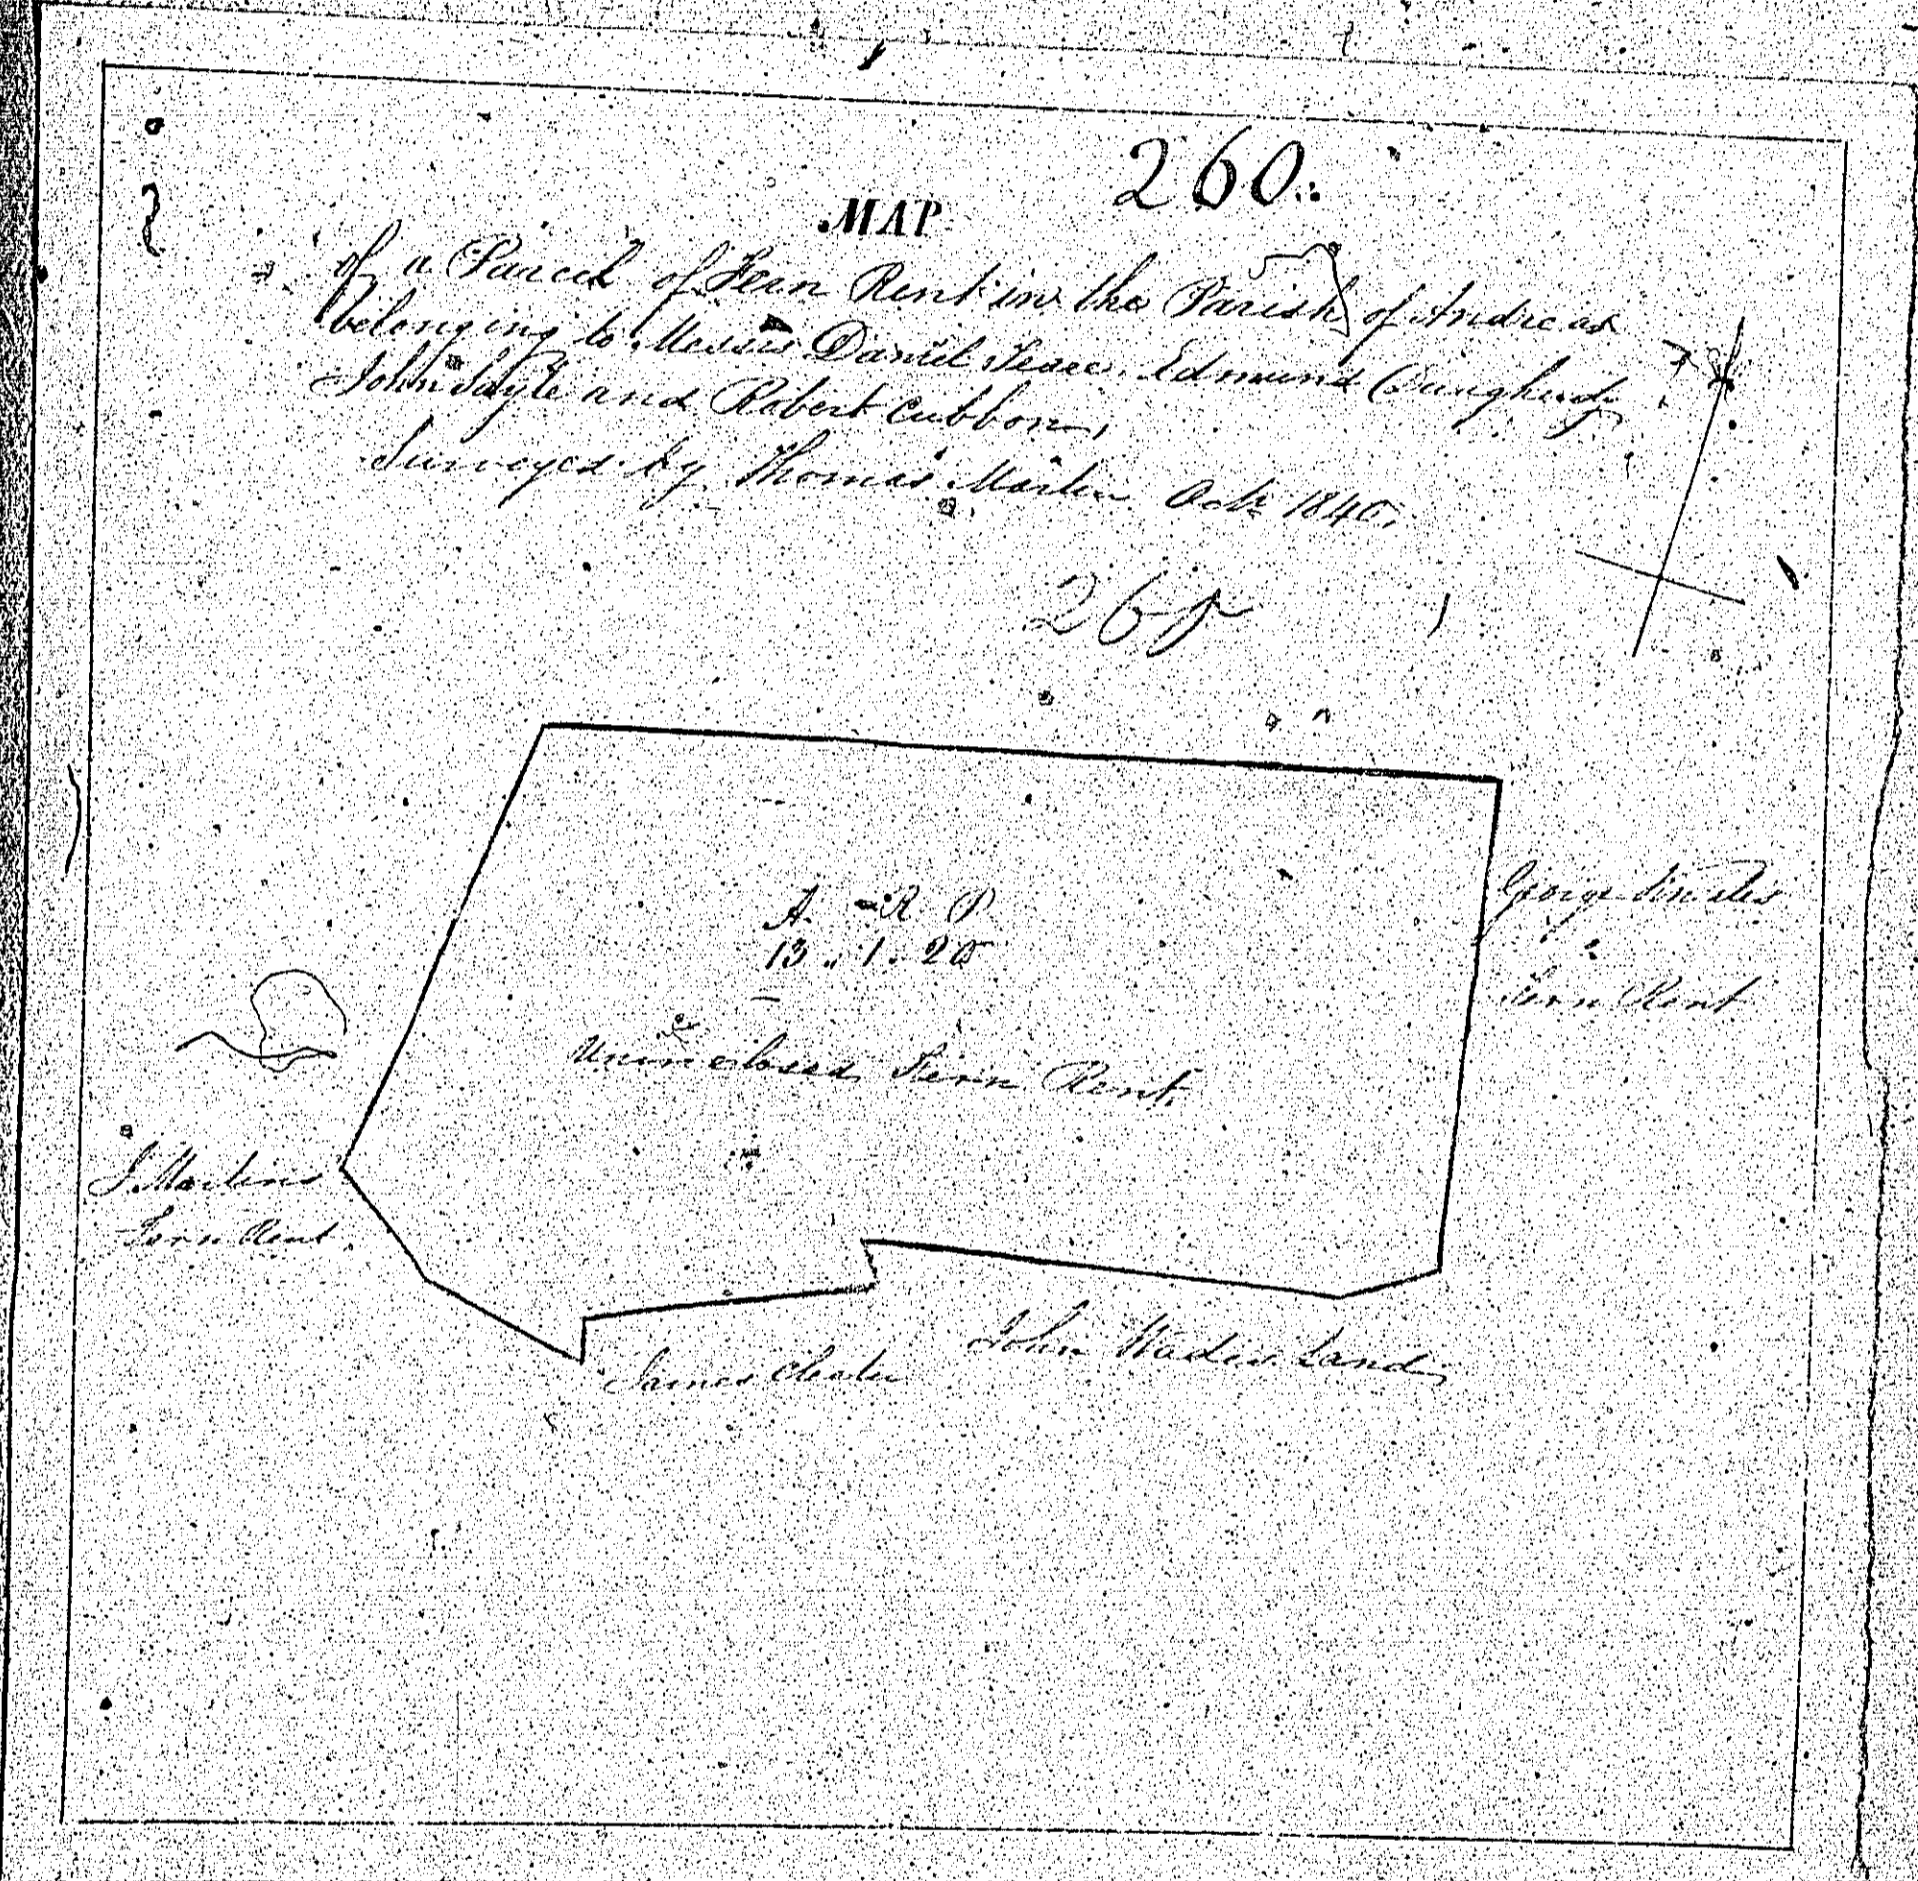 260.
MAP
of a Parcel of Fern Rent in the Parish of Andreas
belonging to Messrs Daniel Teare, Edmund Daugherty
John Sayle and Robert Cubbon,
Surveyed by Thomas Martin Octr 1840,
260
A. R P
13 .. 1 . 20
Uninclosed Fern Rent,
George
Fern Rent
J. Martins
Fern Rent
James
John Wades Land